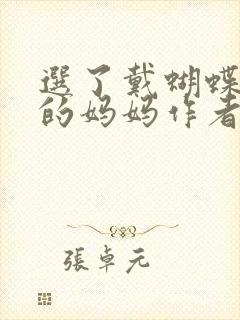 選了戴蝴蝶
的妈妈作者
張卓元